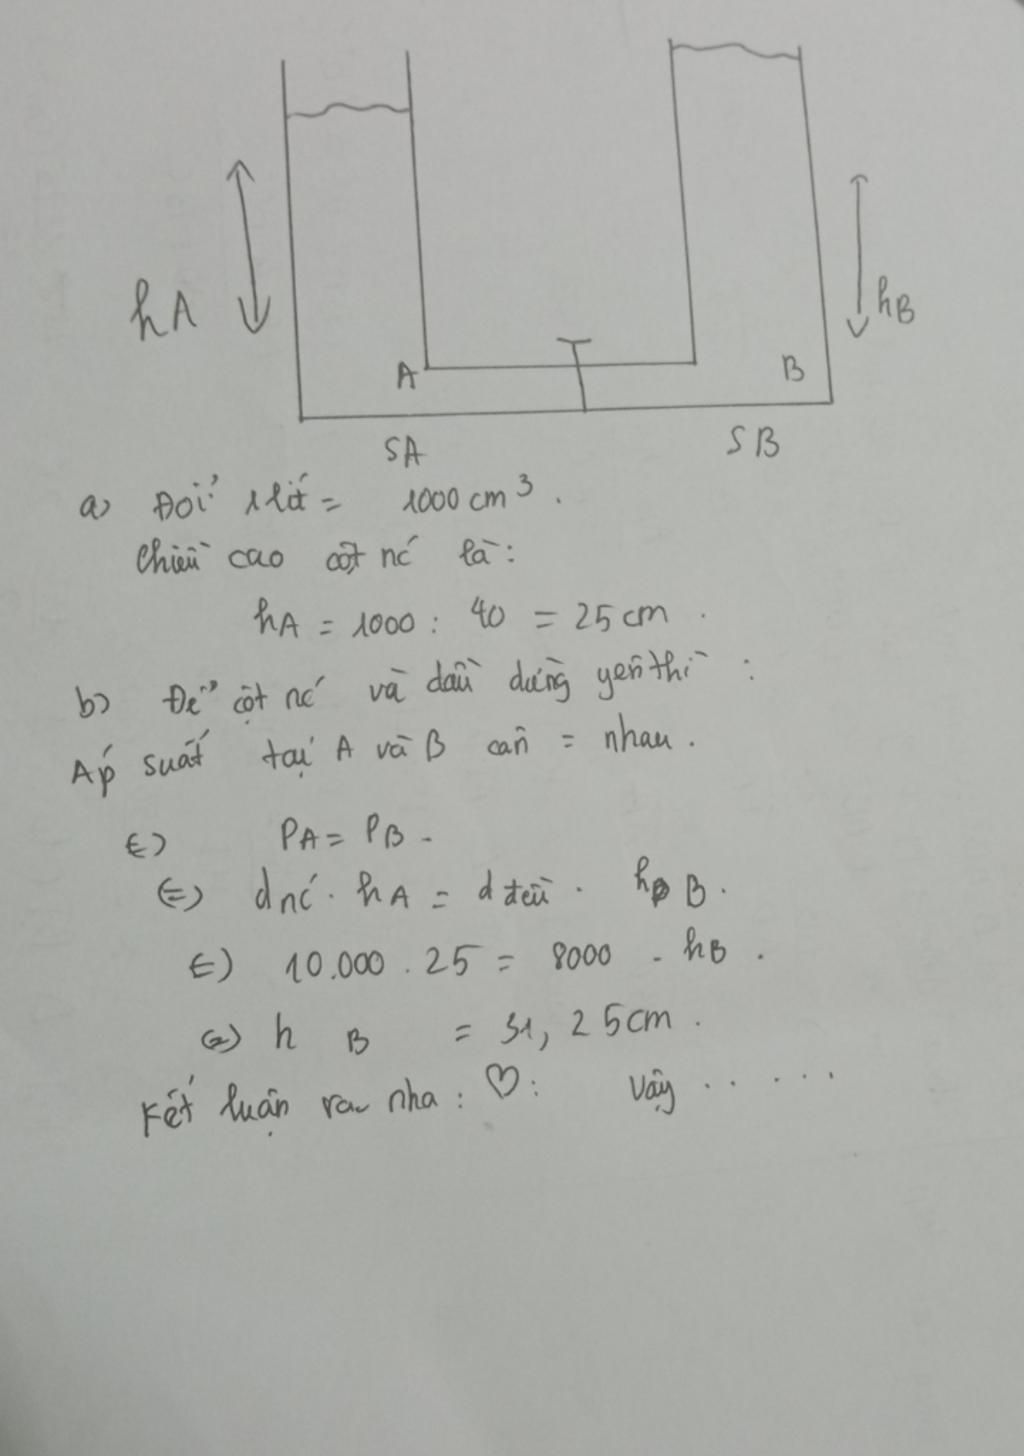 hA
hB
A
B
SA
SB
a) Đổi 1 lít = 1000 cm³.
Chiều cao cột nc là:
hA = 1000 : 40 = 25 cm.
b) Để cột nc và dầu đứng yên thì :
Áp suất tại A và B cần = nhau.
⇔ PA = PB.
⇔ dnc . hA = d dầu . hB.
⇔ 10.000 . 25 = 8000 . hB.
⇔ h B = 31,25cm.
Kết luận ra nha : ♡ : Vậy ......